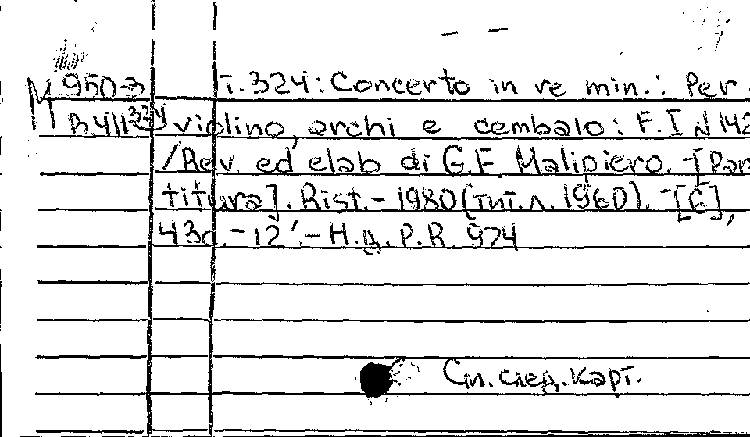 М 950-3 Т. 324: Concerto in re min.: Per
B411 324 violino, archi e cembalo: F. I N 142
/Rev. ed elab di G.F. Malipiero. -[Par
titura]. Rist. - 1980 (тит.л. 1960). -[6],
43с. - 12'. - Н.д. P.R. 974
См. след. карт.